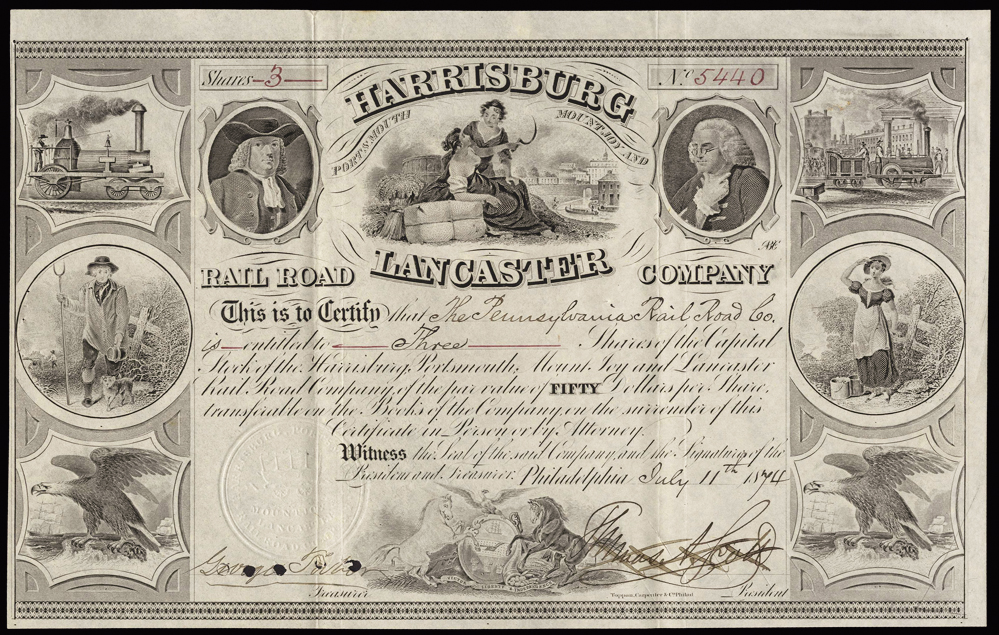 Shares 3
No 5440
HARRISBURG
PORTSMOUTH MOUNTJOY AND
LANCASTER
RAIL ROAD COMPANY
This is to Certify that The Pennsylvania Rail Road Co.
is entitled to Three Shares of the Capital
Stock of the Harrisburg, Portsmouth, Mount Joy and Lancaster
Rail Road Company, of the par value of FIFTY Dollars per Share,
transferable on the Books of the Company, on the surrender of this
Certificate in Person or by Attorney.
Witness the Seal of the said Company, and the Signatures of the
President and Treasurer. Philadelphia July 11th 1874
Thomas A. Scott
Treasurer
Toppan, Carpenter & Co. Philad.
President